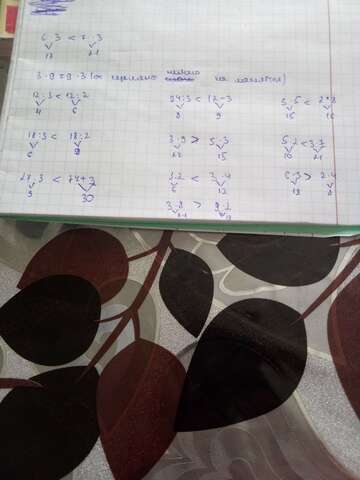 6·3 < 7·3
18 21
3·9 = 9·3 (от перемены ничего не меняется)
12:3 < 12:2
4 6
24:3 < 12-3
8 9
3·5 < 2·8
15 16
18:3 < 18:2
6 9
3·9 > 5·3
27 15
5·2 < 3·7
10 21
27:3 < 27+3
9 30
3·2 < 3·4
6 12
6·3 > 2·4
18 8
3·8 > 9·2
24 18